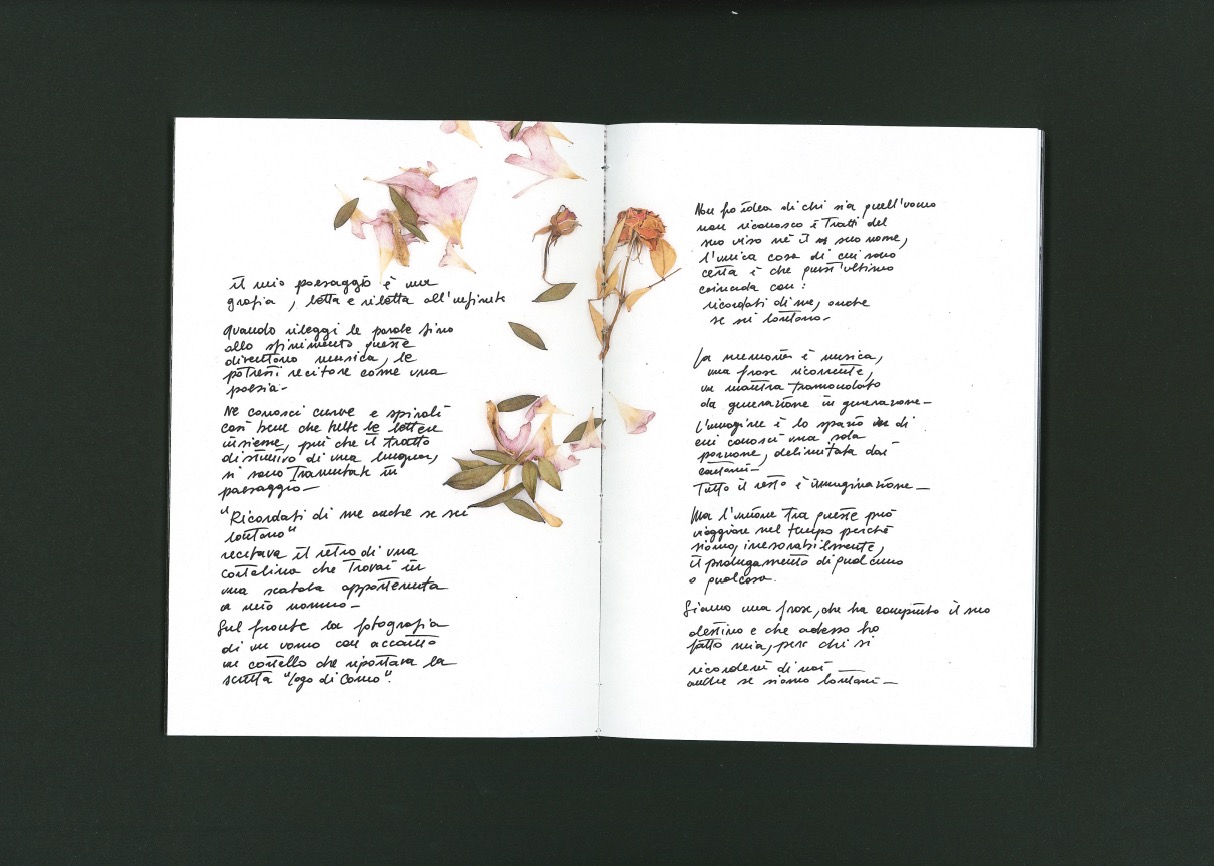 il mio paesaggio è una
grafia, letta e riletta all'infinito
Quando rileggi le parole fino
allo sfinimento queste
diventano musica, le
potresti recitare come una
poesia-
Ne conosci curve e spirali
così bene che tutte le lettere
insieme, più che il tratto
distintivo di una lingua,
si sono Tramutate in
paesaggio-
"Ricordati di me anche se sei
lontano"
recitava il retro di una
cartolina che Trovai in
una scatola appartenuta
a mio nonno-
Sul fronte la fotografia
di un uomo con accanto
un cartello che riportava la
scritta "lago di Como".
Non ho idea di chi sia quell'uomo
non riconosco i Tratti del
suo viso nè il suo nome,
l'unica cosa di cui sono
certa è che quest'ultimo
coincida con:
ricordati di me, anche
se sei lontano-
La memoria è musica,
una frase ricorrente,
un mantra tramandato
da generazione in generazione-
L'immagine è lo spazio di
cui conosci una sola
porzione, delimitata dai
contorni-
Tutto il resto è immaginazione-
Ma l'unione tra queste può
viaggiare nel tempo perchè
siamo, inesorabilmente,
il prolungamento di qualcuno
o qualcosa.
Siamo una frase, che ha compiuto il suo
destino e che adesso ho
fatto mia, per chi si
ricorderà di noi
anche se siamo lontani-